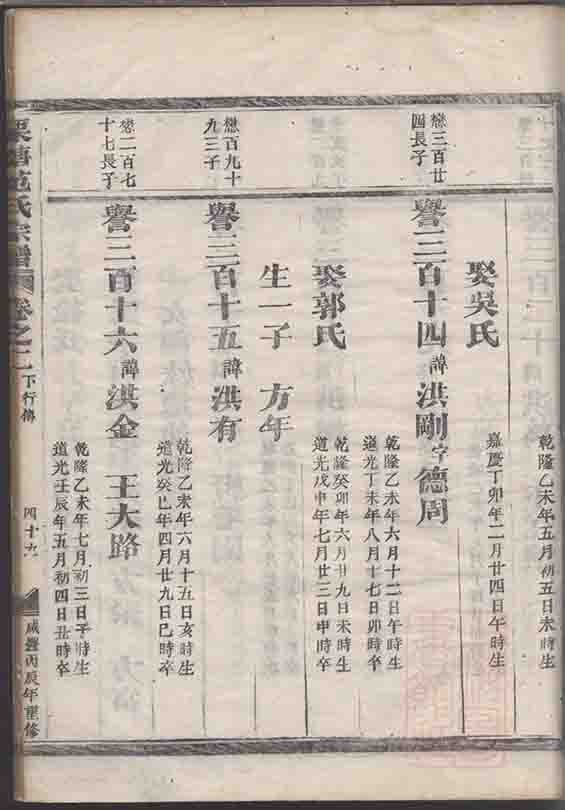 乾隆乙未年五月初五日未時生
娶吳氏
嘉慶丁卯年二月廿四日午時生
懋三百廿四長子
譽三百十四諱洪剛字德周
乾隆乙未年六月十二日午時生
道光丁未年八月十七日卯時卒
娶郭氏
乾隆癸卯年六月廿九日未時生
道光戊申年七月廿三日申時卒
生一子 方年
懋百九十九三子
譽三百十五諱洪有
乾隆乙未年六月十五日亥時生
道光癸巳年四月廿九日巳時卒
懋二百七十七長子
譽三百十六諱洪金 王大路
乾隆乙未年七月初三日子時生
道光壬辰年五月初四日丑時卒
范氏宗譜 卷之二 下行傳 四十六 咸豐丙辰年重修